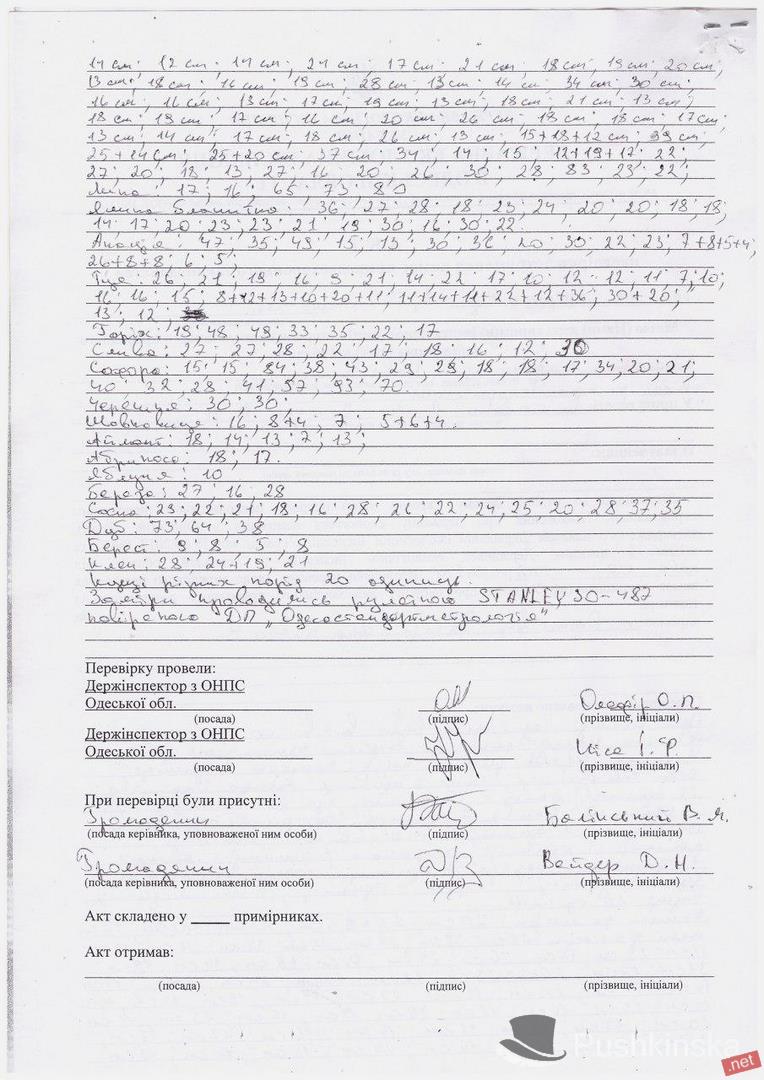 14 см; 12 см; 14 см; 24 см; 17 см; 21 см; 18 см; 19 см; 20 см;
13 см; 18 см; 16 см; 19 см; 28 см; 13 см; 14 см; 34 см; 30 см;
16 см; 16 см; 13 см; 17 см; 19 см; 13 см; 18 см; 21 см; 13 см;
18 см; 19 см; 17 см; 16 см; 20 см; 26 см; 18 см; 18 см; 17 см;
13 см; 14 см; 17 см; 18 см; 26 см; 13 см; 15+18+12 см; 39 см;
25+14 см; 25+20 см; 37 см; 34; 14; 15; 12+19+17; 22;
27; 20; 18; 13; 27; 16; 20; 26; 30; 28; 83; 23; 22;
Липа: 17; 16; 65; 73; 80
Ялинка блакитна: 36; 27; 28; 18; 23; 24; 20; 20; 18; 18;
14; 17; 20; 23; 23; 21; 19; 30; 16; 30; 22.
Акація: 47; 35; 49; 15; 19; 30; 36; 20; 30; 22; 23; 7+8+5+4;
26+8+8; 6; 5;
Туя: 26; 21; 19; 16; 9; 21; 14; 22; 17; 10; 12; 12; 11; 7; 10;
16; 16; 15; 8+12+13+10+20+11; 11+14+11+22+12+36; 30+20;
13; 12;
Горіх: 19; 48; 49; 33; 35; 22; 17
Слива: 27; 27; 28; 22; 17; 18; 16; 12; 30
Софора: 15; 15; 84; 38; 43; 29; 29; 18; 18; 17; 34; 20; 21;
40; 32; 28; 41; 57; 93; 70.
Черешня: 30; 30;
Шовковиця: 16; 8+4; 7; 5+6+4.
Айлант: 18; 14; 13; 7; 13;
Абрикоса: 18; 17.
Яблуня: 10
Береза: 27; 16; 28
Сосна: 23; 22; 21; 18; 16; 28; 26; 22; 24; 25; 20; 28; 37; 35
Дуб: 73; 64; 38
Берест: 9; 8; 5; 8
Клен: 28; 24+19; 21
Кущі різних порід 20 одиниць.
Заміри проводились рулеткою STANLEY 30-487
повіреного ДП „Одесастандартметрологія"
Перевірку провели:
Держінспектор з ОНПС
Одеської обл. Олефір О.П.
(посада) (підпис) (прізвище, ініціали)
Держінспектор з ОНПС
Одеської обл. І.Ф.
(посада) (підпис) (прізвище, ініціали)
При перевірці були присутні:
Громадянин Балінський В.Я.
(посада керівника, уповноваженої ним особи) (підпис) (прізвище, ініціали)
Громадянин Вейдер Д.Н.
(посада керівника, уповноваженої ним особи) (підпис) (прізвище, ініціали)
Акт складено у _____ примірниках.
Акт отримав:
(посада) (підпис) (прізвище, ініціали)
Pushkinska
.net